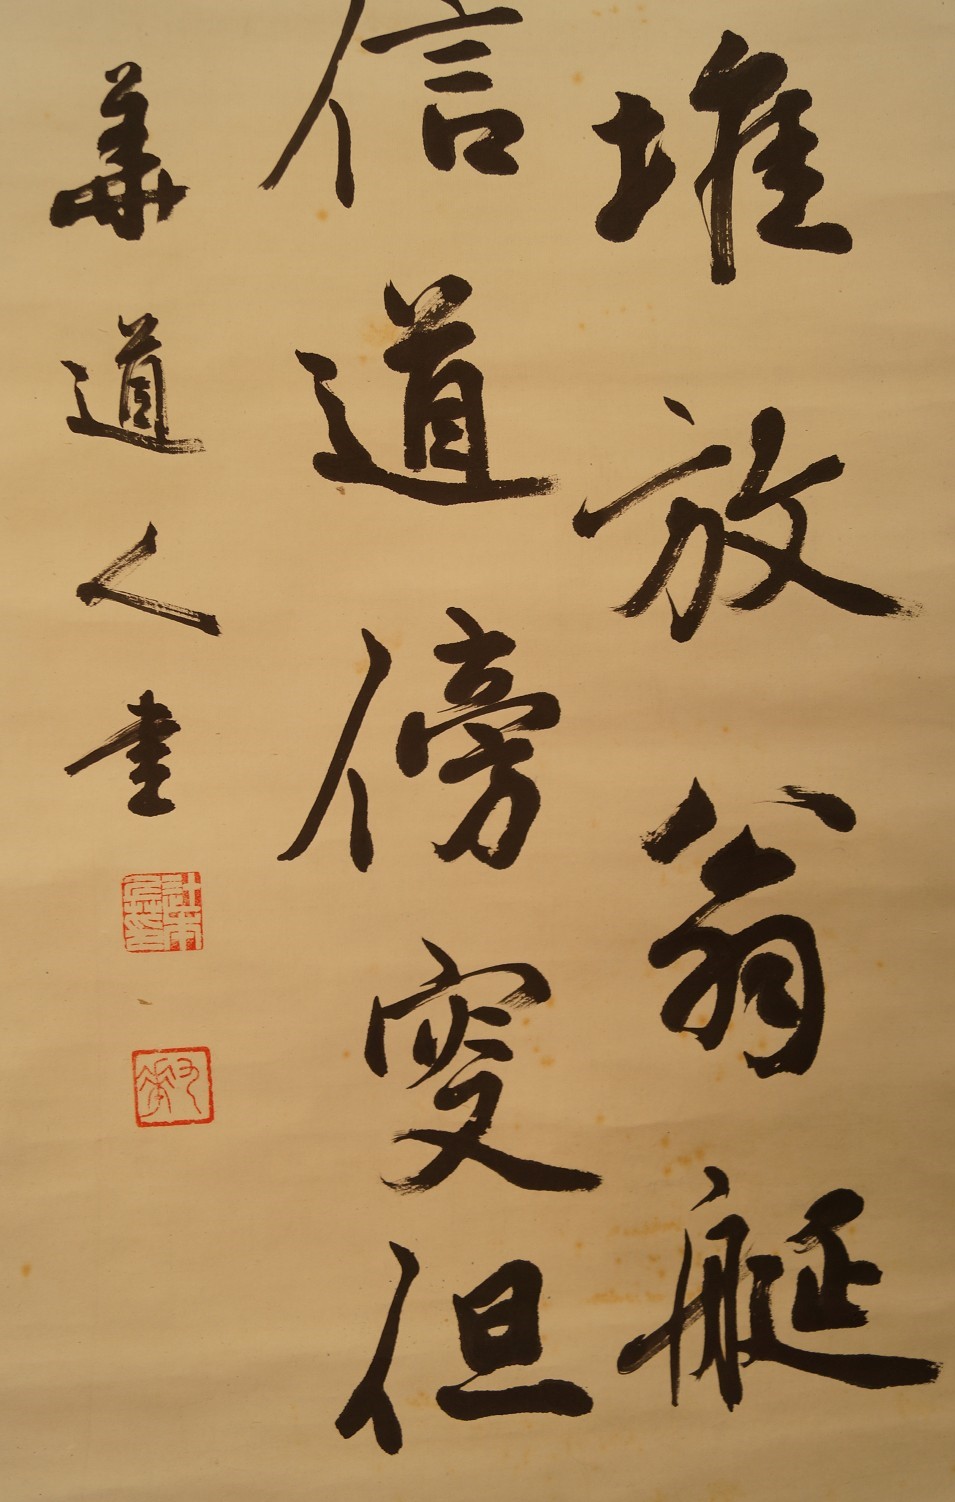 堆放翁艇
信道傍叟但
華道人書